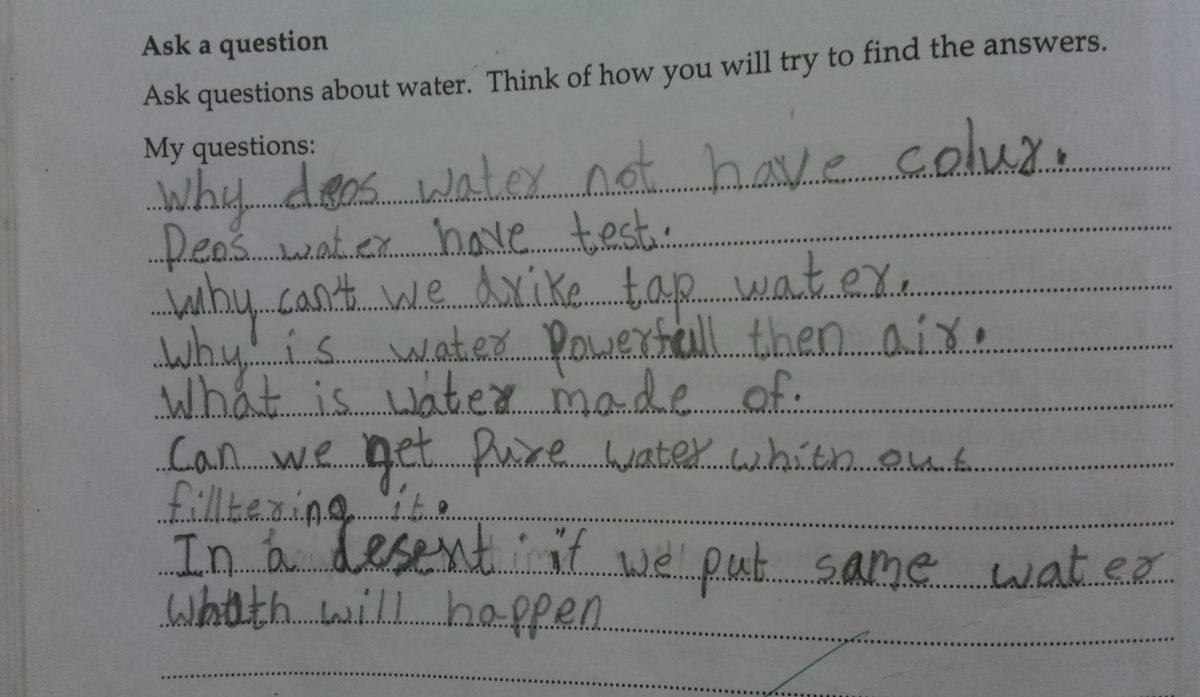 Ask a question
Ask questions about water. Think of how you will try to find the answers.
My questions:
Why deos water not have colur.
Deos water have test.
why can't we drike tap water.
Why is water Powerfull then air.
What is water made of.
Can we get Pure water whith out
filltering it.
In a desert if we put same water
whath will happen